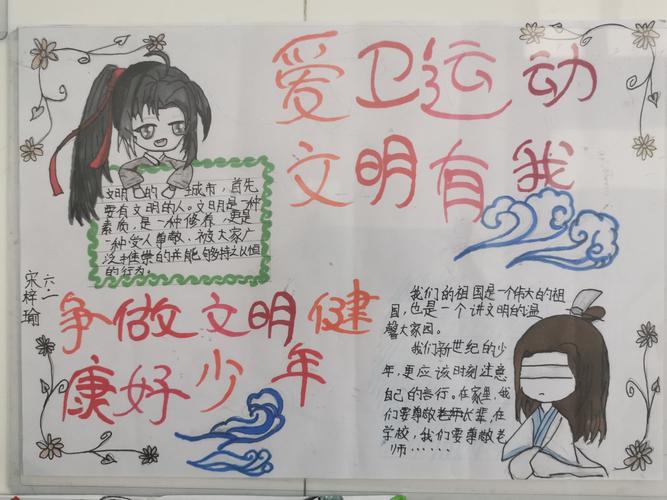 爱卫运动
文明有我
文明 的 城市，首先
要有文明的人。文明是一种
素质，是一种修养，更是
一种受人尊敬、被大家广
泛推崇的并能够持之以恒
的行为。
六.二
宋梓瑜
争做文明健
康好少年
我们的祖国是一个伟大的祖
国，也是一个讲文明的温
馨大家园。
我们新世纪的少
年，更应该时刻注意
自己的言行。在家里，我
们要尊敬老师长辈，在
学校，我们要尊敬老
师……